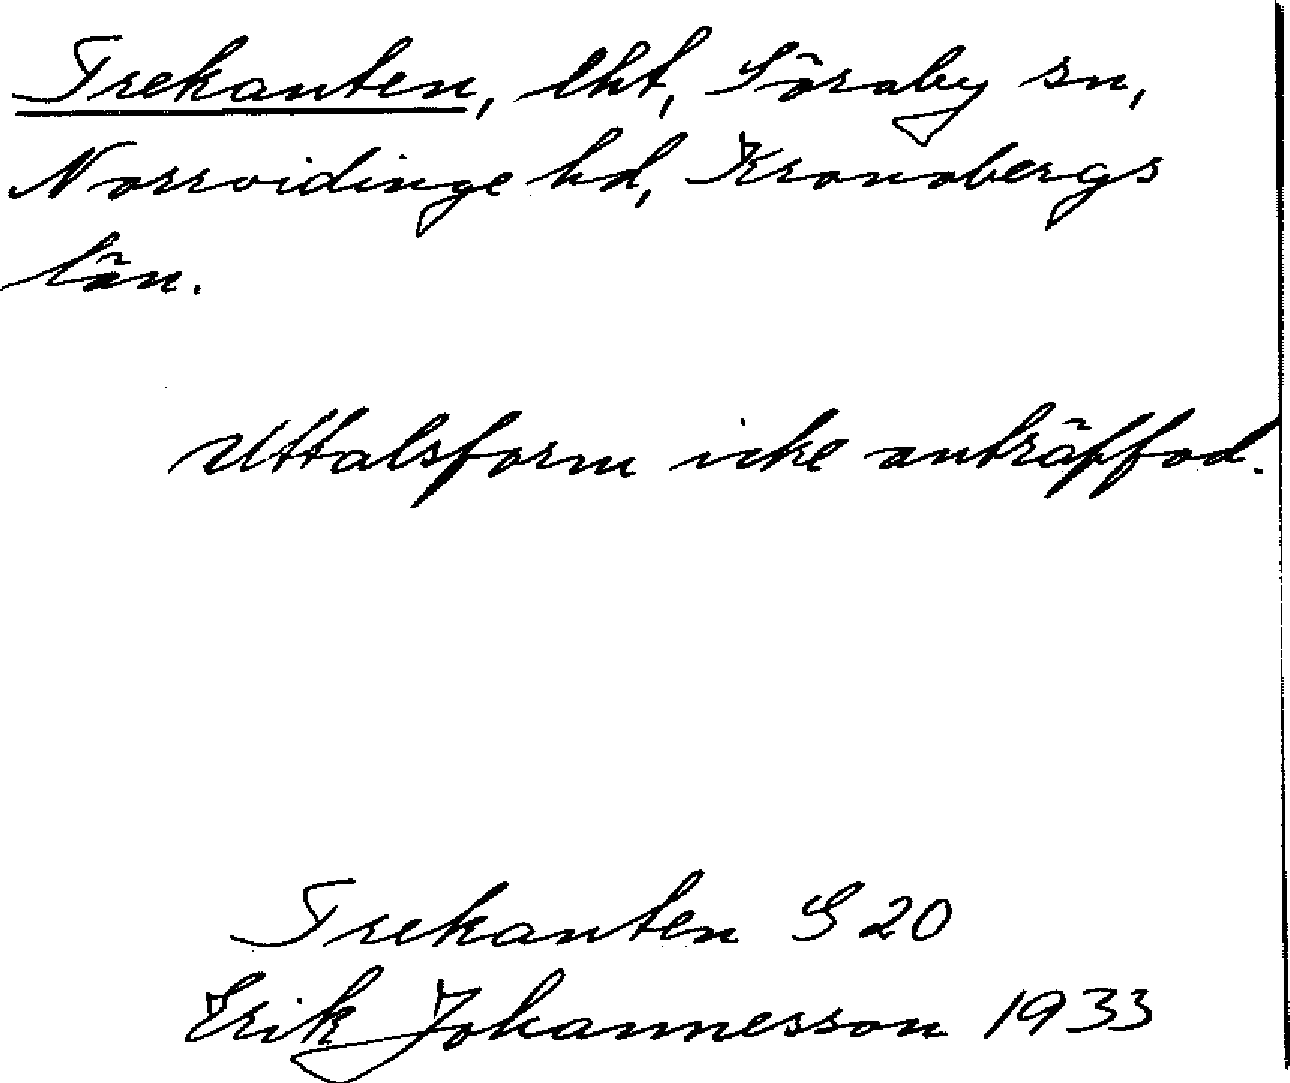 Trekanten, lht, Söraby sn,
Norrvidinge hd, Kronobergs
län.
Uttalsform icke anträffad.
Trekanten S 20
Erik Johannesson 1933